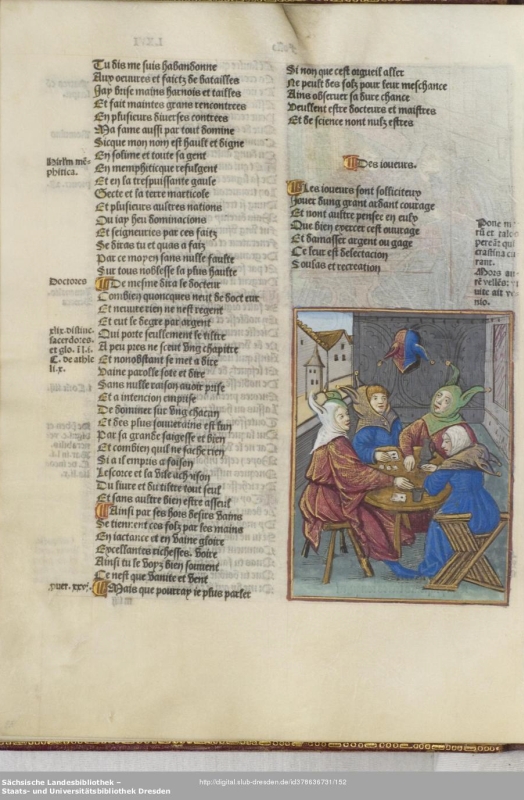 Tu dis me suis habandonne
Aux oeuures et faictz de batailles
Jay brise mains harnois et tailles
Et fait maintes grans rencontrees
En plusieurs diuerses contrees
Ma fame aussi par tout domine
Sicque mon nom est hault et digne
En solime et toute sa gent
En memphiticque refulgent
Et en la trespuissante gaule
Secte et la terre marticole
Et plusieurs aultres nations
Ou iay heu dominacions
Et seigneuries par ces faitz
Se diras tu et quas a faiz
Par ce moyen sans nulle faulte
Sur tous noblesse la plus haulte
De mesme dira le docteur
Combien quoncques neut de doct eur
Et neuure rien ne nest regent
Et eut le degre par argent
Qui porte seullement le tiltre
A peu pres ne sceut ung chapitre
Et nonobstant se met a dire
Vaine parolle sote et dire
Sans nulle raison auoir prise
Et a intencion emprise
De dominer sur ung chacun
Et des plus souuerains est lun
Par sa grande saigesse et bien
Et combien quil ne sache rien
Si a il empris a foison
Lescorce et la vile
Du liure et du tiltre tout seul
Et sans aultre bien estre asseul
Ainsi par ses hois desirs vains
Se tiennent ces folz par les mains
En iactance et en vaine gloire
Excellantes richesses. voire
Ainsi tu le voyz bien souuent
Ce nest que vanite et vent
Mais que pourray ie plus parler
Hirlm mē-
phitica.
Doctores
xlix. distinc.
sacerdo: es.
et glo. i l. i.
C. de athle
li. x.
puer. xxv.
Si non que cest orgueil aller
Ne peult des folz pour leur meschance
Ains obseruer sa dure chance
Veullent estre docteurs et maistres
Et de science nont nulz estres
Des ioueurs.
Les ioueurs sont solliciteux
Jouer dung grant ardant courage
Et nont aultre penser en eulx
Que bien exercer cest ouurage
Et damasser argent ou gage
Ce leur est delectacion
Soulas et recreation
Pone m
rū et talos
pereāt qui
crastina cu
rant.
Mors au
rē vellēs:
uite ait ve
nio.
Sächsische Landesbibliothek –
Staats- und Universitätsbibliothek Dresden
http://digital.slub-dresden.de/id378636731/152